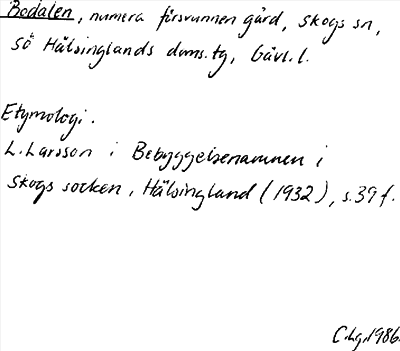 Bodalen, numera försvunnen gård, Skogs sn,
SÖ Hälsinglands doms.tg, Gävl.l.
Etymologi.
L. Larsson i Bebyggelsenamnen i
Skogs socken, Hälsingland (1932), s. 39 f.
C.Lg. 1986.